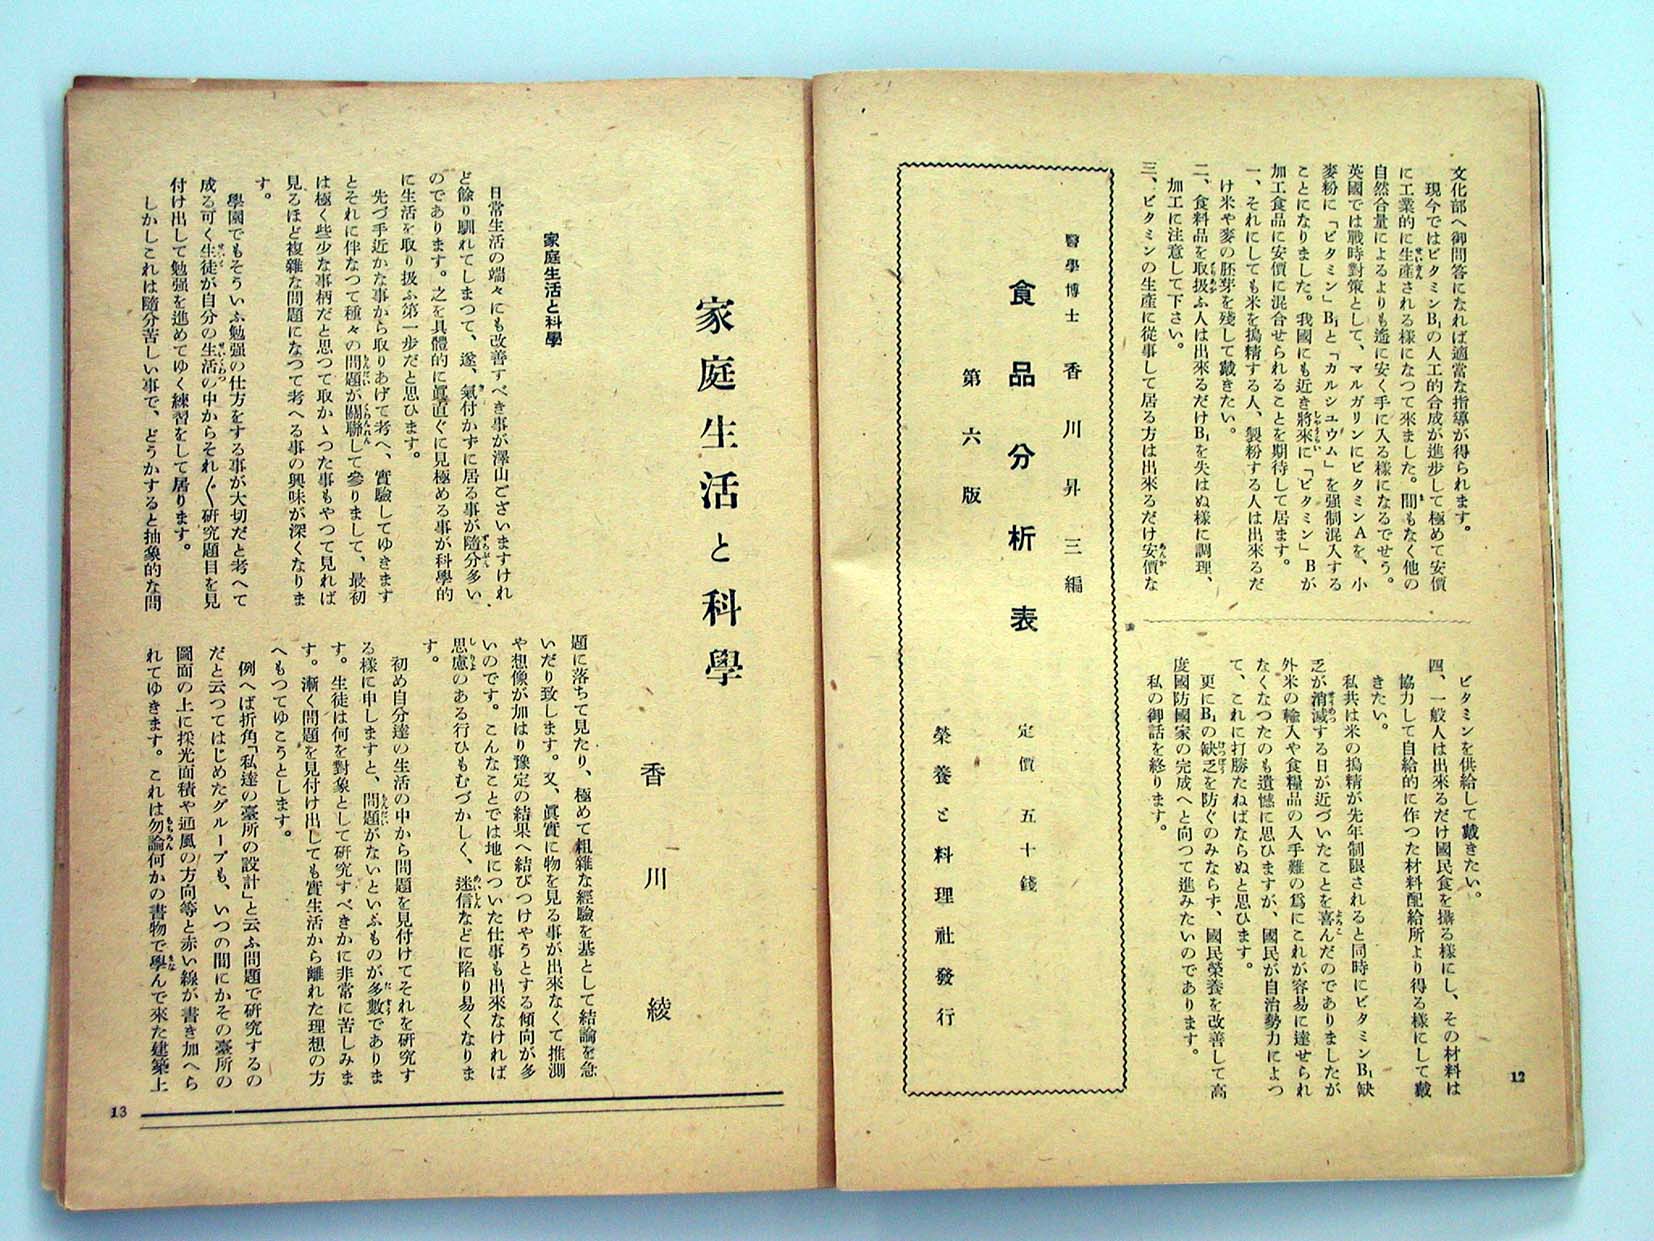 文化部へ御問答になれば適當な指導が得られます。
現今ではビタミンB₁の人工的合成が進步して極めて安價
に工業的に生産される樣になつて來ました。間もなく他の
自然含量によるよりも遙に安く手に入る樣になるでせう。
英國では戰時對策として、マルガリンにビタミンAを、小
麥粉に「ビタミン」B₁と「カルシユウム」を强制混入する
ことになりました。我國にも近き將來に「ビタミン」Bが
加工食品に安價に混合せられることを期待して居ます。
一、それにしても米を搗精する人、製粉する人は出來るだ
け米や麥の胚芽を殘して戴きたい。
二、食料品を取扱ふ人は出來るだけB₁を失はぬ樣に調理、
加工に注意して下さい。
三、ビタミンの生産に從事して居る方は出來るだけ安價な
ビタミンを供給して戴きたい。
四、一般人は出來るだけ國民食を攝る樣にし、その材料は
協力して自給的に作つた材料配給所より得る樣にして戴
きたい。
私共は米の搗精が先年制限されると同時にビタミンB₁缺
乏が消滅する日が近づいたことを喜んだのでありましたが
外米の輸入や食糧品の入手難の爲にこれが容易に達せられ
なくなつたのも遺憾に思ひますが、國民が自治勢力によつ
て、これに打勝たねばならぬと思ひます。
更にB₁の缺乏を防ぐのみならず、國民榮養を改善して高
度國防國家の完成へと向つて進みたいのであります。
私の御話を終ります。
醫學博士 香川昇三編
食品分析表
第六版
定價 五十錢
榮養と料理社發行
12
家庭生活と科學
香川 綾
家庭生活と科學
日常生活の端々にも改善すべき事が澤山ございますけれ
ど餘り馴れてしまつて、遂、氣付かずに居る事が隨分多い
のであります。之を具體的に眞直ぐに見極める事が科學的
に生活を取り扱ふ第一步だと思ひます。
先づ手近かな事から取りあげて考へ、實驗してゆきます
とそれに伴なつて種々の問題が關聯して參りまして、最初
は極く些少な事柄だと思つて取かゝつた事もやつて見れば
見るほど複雜な問題になつて考へる事の興味が深くなりま
す。
學園でもそういふ勉强の仕方をする事が大切だと考へて
成る可く生徒が自分の生活の中からそれ〴〵硏究題目を見
付け出して勉强を進めてゆく練習をして居ります。
しかしこれは隨分苦しい事で、どうかすると抽象的な問
題に落ちて見たり、極めて粗雜な經驗を基として結論を急
いだり致します。又、眞實に物を見る事が出來なくて推測
や想像が加はり豫定の結果へ結びつけやうとする傾向が多
いのです。こんなことでは地についた仕事も出來なければ
思慮のある行ひもむづかしく、迷信などに陷り易くなりま
す。
初め自分達の生活の中から問題を見付けてそれを硏究す
る樣に申しますと、問題がないといふものが多數でありま
す。生徒は何を對象として硏究すべきかに非常に苦しみま
す。漸く問題を見付け出しても實生活から離れた理想の方
へもつてゆこうとします。
例へば折角「私達の臺所の設計」と云ふ問題で硏究するの
だと云つてはじめたグループも、いつの間にかその臺所の
圖面の上に採光面積や通風の方向等と赤い線が書き加へら
れてゆきます。これは勿論何かの書物で學んで來た建築上
13